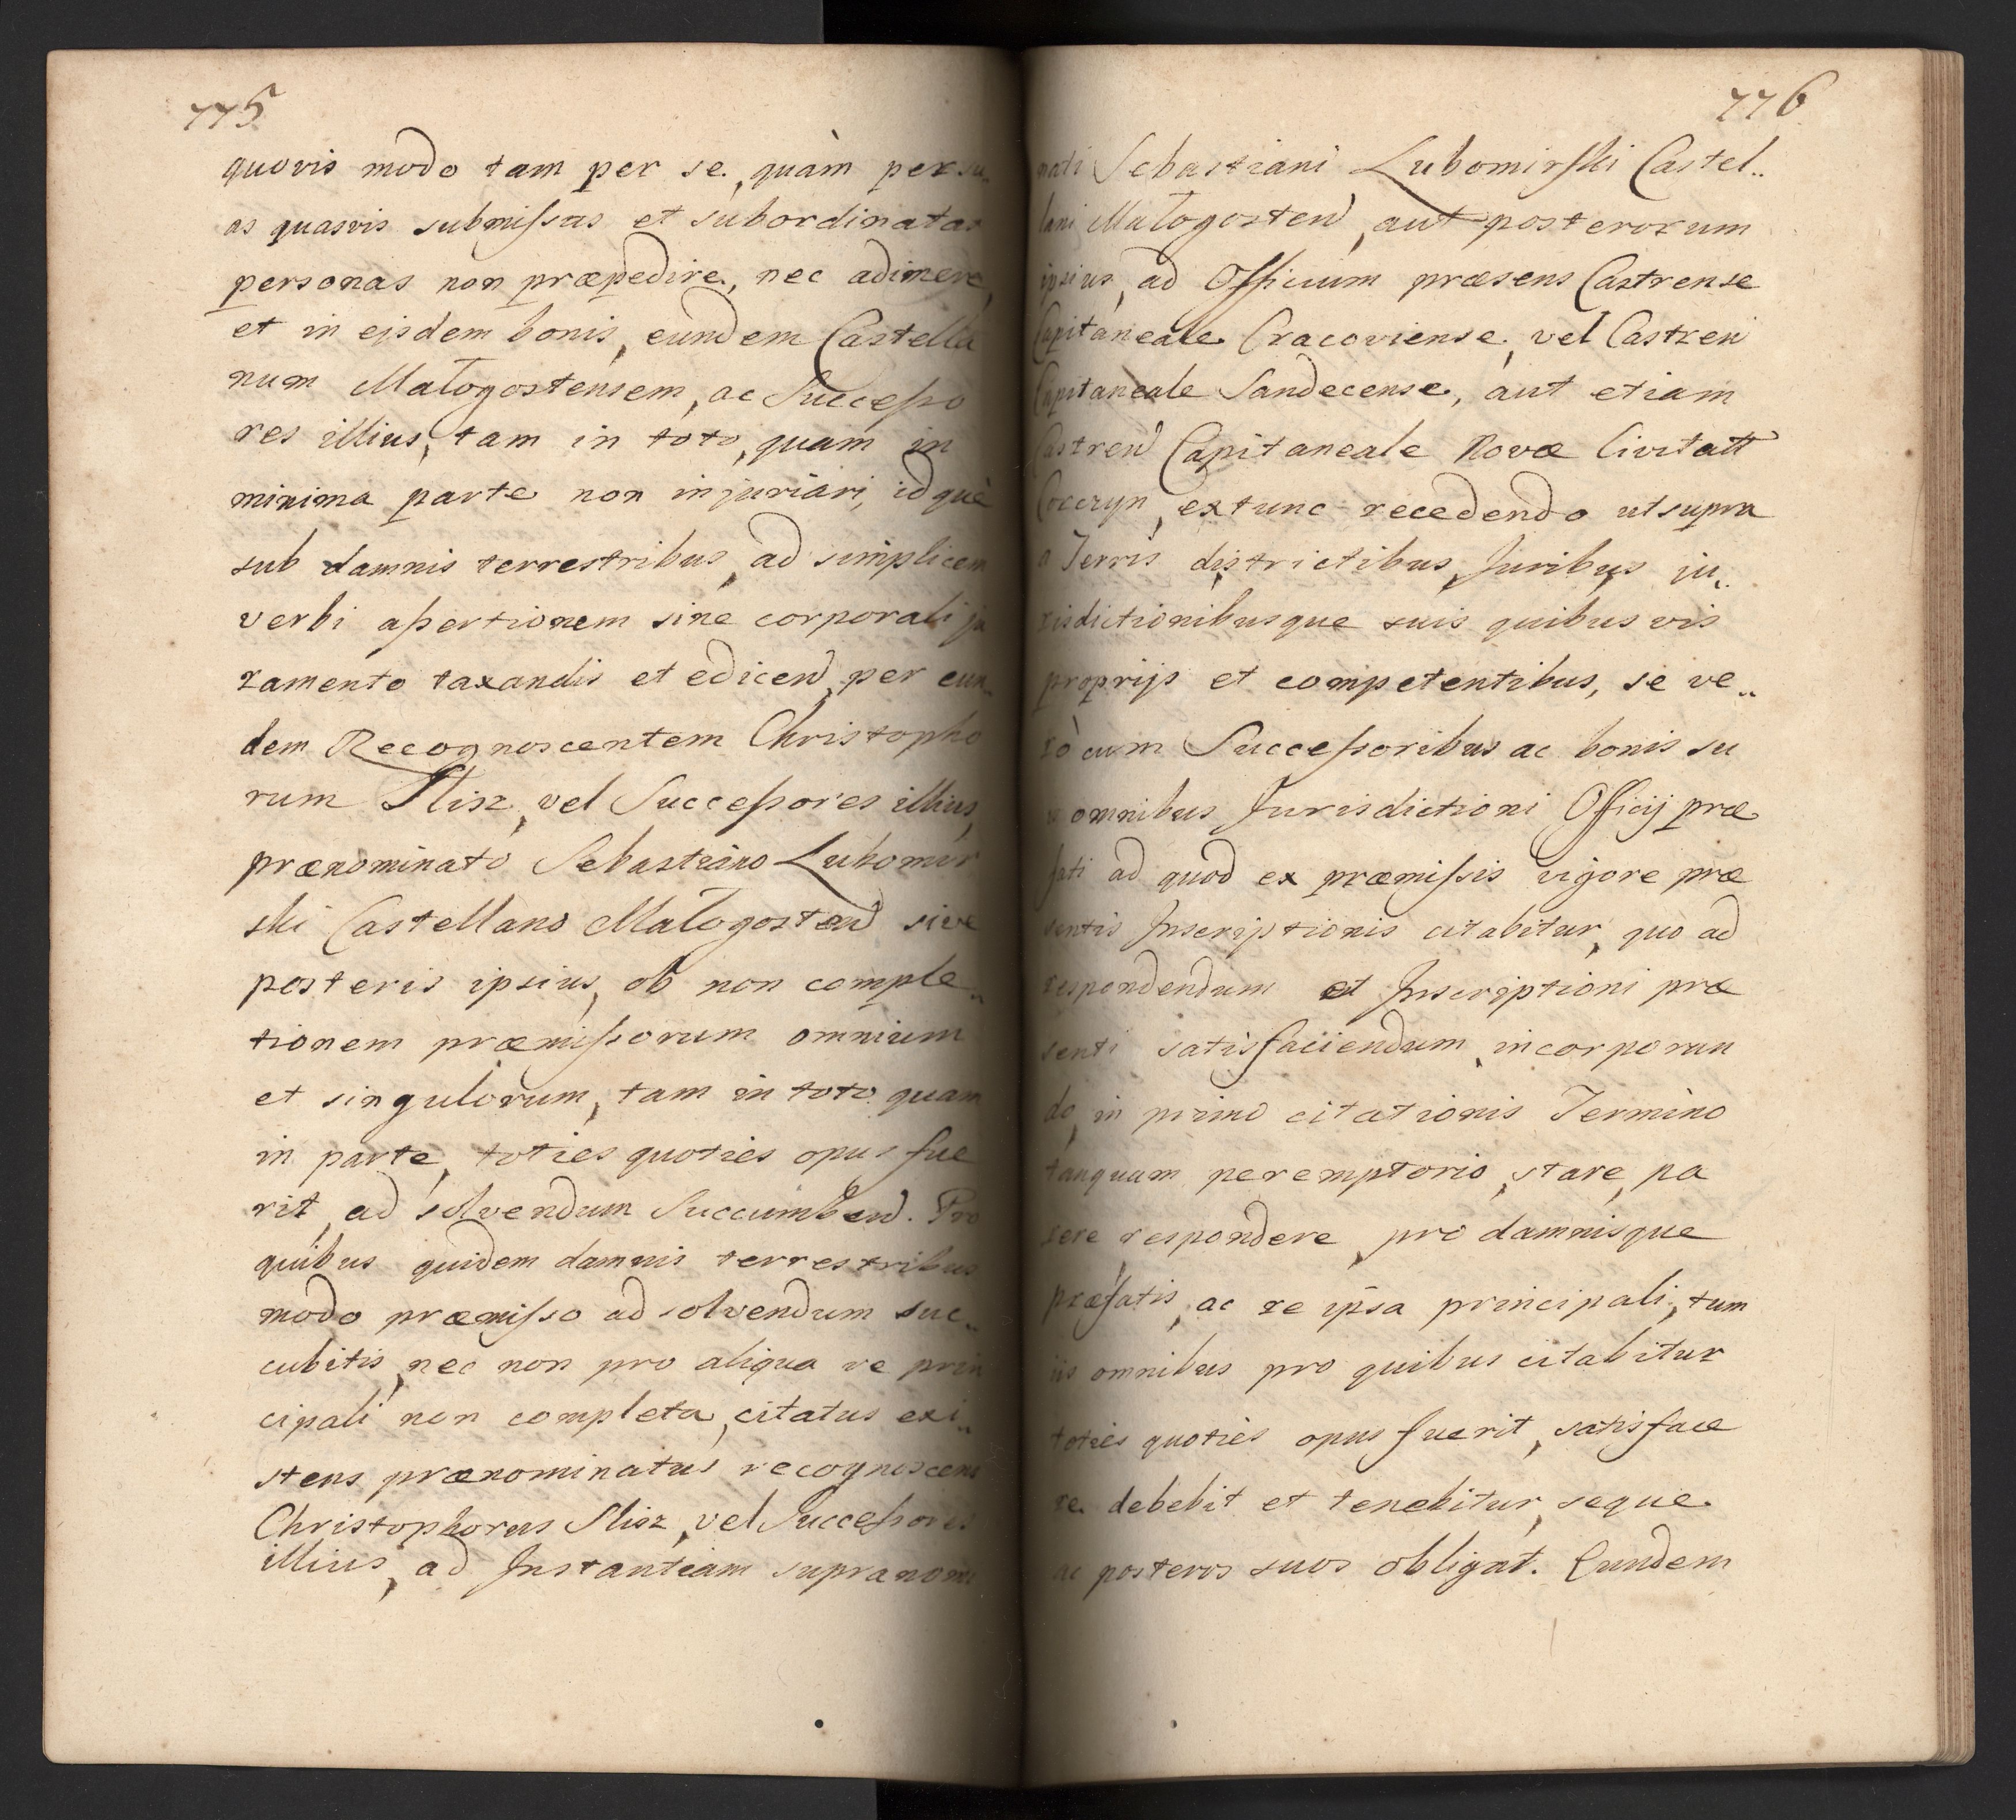 775
quovis modo tam per se, quàm per su„
as quasvis submissas et subordinatas
personas non præpedire, nec adimere,
et in ejsdem bonis, eundem Castella
num Małogostensem, ac Successo
res illius, tam in toto, quam in
minima parte non injuriari, idquè
sub damnis terrestribus, ad simplicem
verbi assertionem sine corporali ju
ramento taxandis et edicend, per eun„
dem Recognoscentem Christopho
rum Slisz, vel Successores illius,
prænominato Sebastiano Lubomir
ski Castellano Małogosten sive
posteris ipsius, ob non comple„
tionem præmissorum omnium
et singulorum, tam in toto quam
in parte, toties quoties opus fue
rit, ad solvendum Succumben. Pro
quibus quidem damnis terrestribus
modo præmisso ad solvendum suc„
cubitis, nec non pro aliqua re prin
cipali non completa, citatus exi„
stens prænominatus recognoscens
Christophorus Slisz, vel Successores
illius, ad Instantiam supranomi
776
nati Sebastiani Lubomirski Castel„
lani Małogosten, aut posterorum
ipsius, ad Officium præsens Castrense
Capitaneale Cracoviense, vel Castren
Capitaneale Sandecense, aut etiam
Castren Capitaneale Novæ Civitatt
Corczyn, extunc recedendo ut supra
a Terris districtibus, Juribus, ju„
risdictionibusque suis quibusvis
proprijs et competentibus, se ve„
rò cum Successoribus ac bonis su
is omnibus Jurisdictioni Officij præ
fati ad quod ex præmissis vigore præ
sentis Inscriptionis citabitur, quo ad
respondendum et Inscriptioni præ
senti satisfaciendum, incorporan
do, in primo citationis Termino
tanquam peremptorio, stare, pa
rere respondere, pro damnisque
præfatis, ac re ipsa principali, tum
iis omnibus pro quibus citabitur
toties quoties opus fuerit, satisface
re debebit et tenebitur, seque
ac posteros suos obligat. Eundem